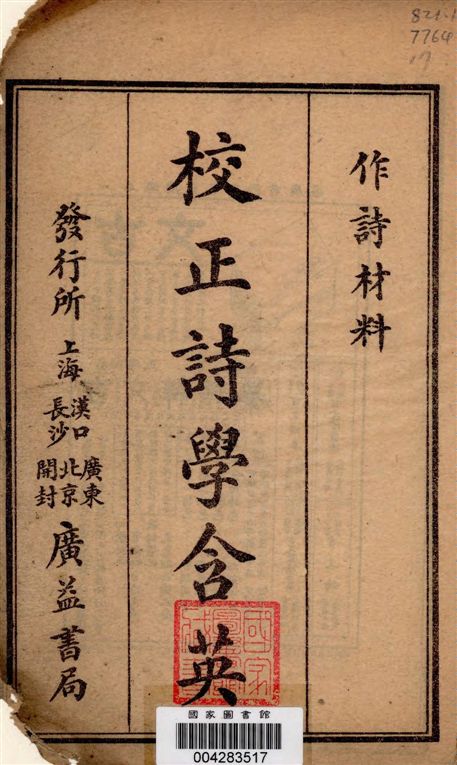 821.1
7764
作詩材料
校正詩學含英
發行所
上海
漢口
長沙
廣東
北京
開封
廣益書局
國家圖書館
004283517